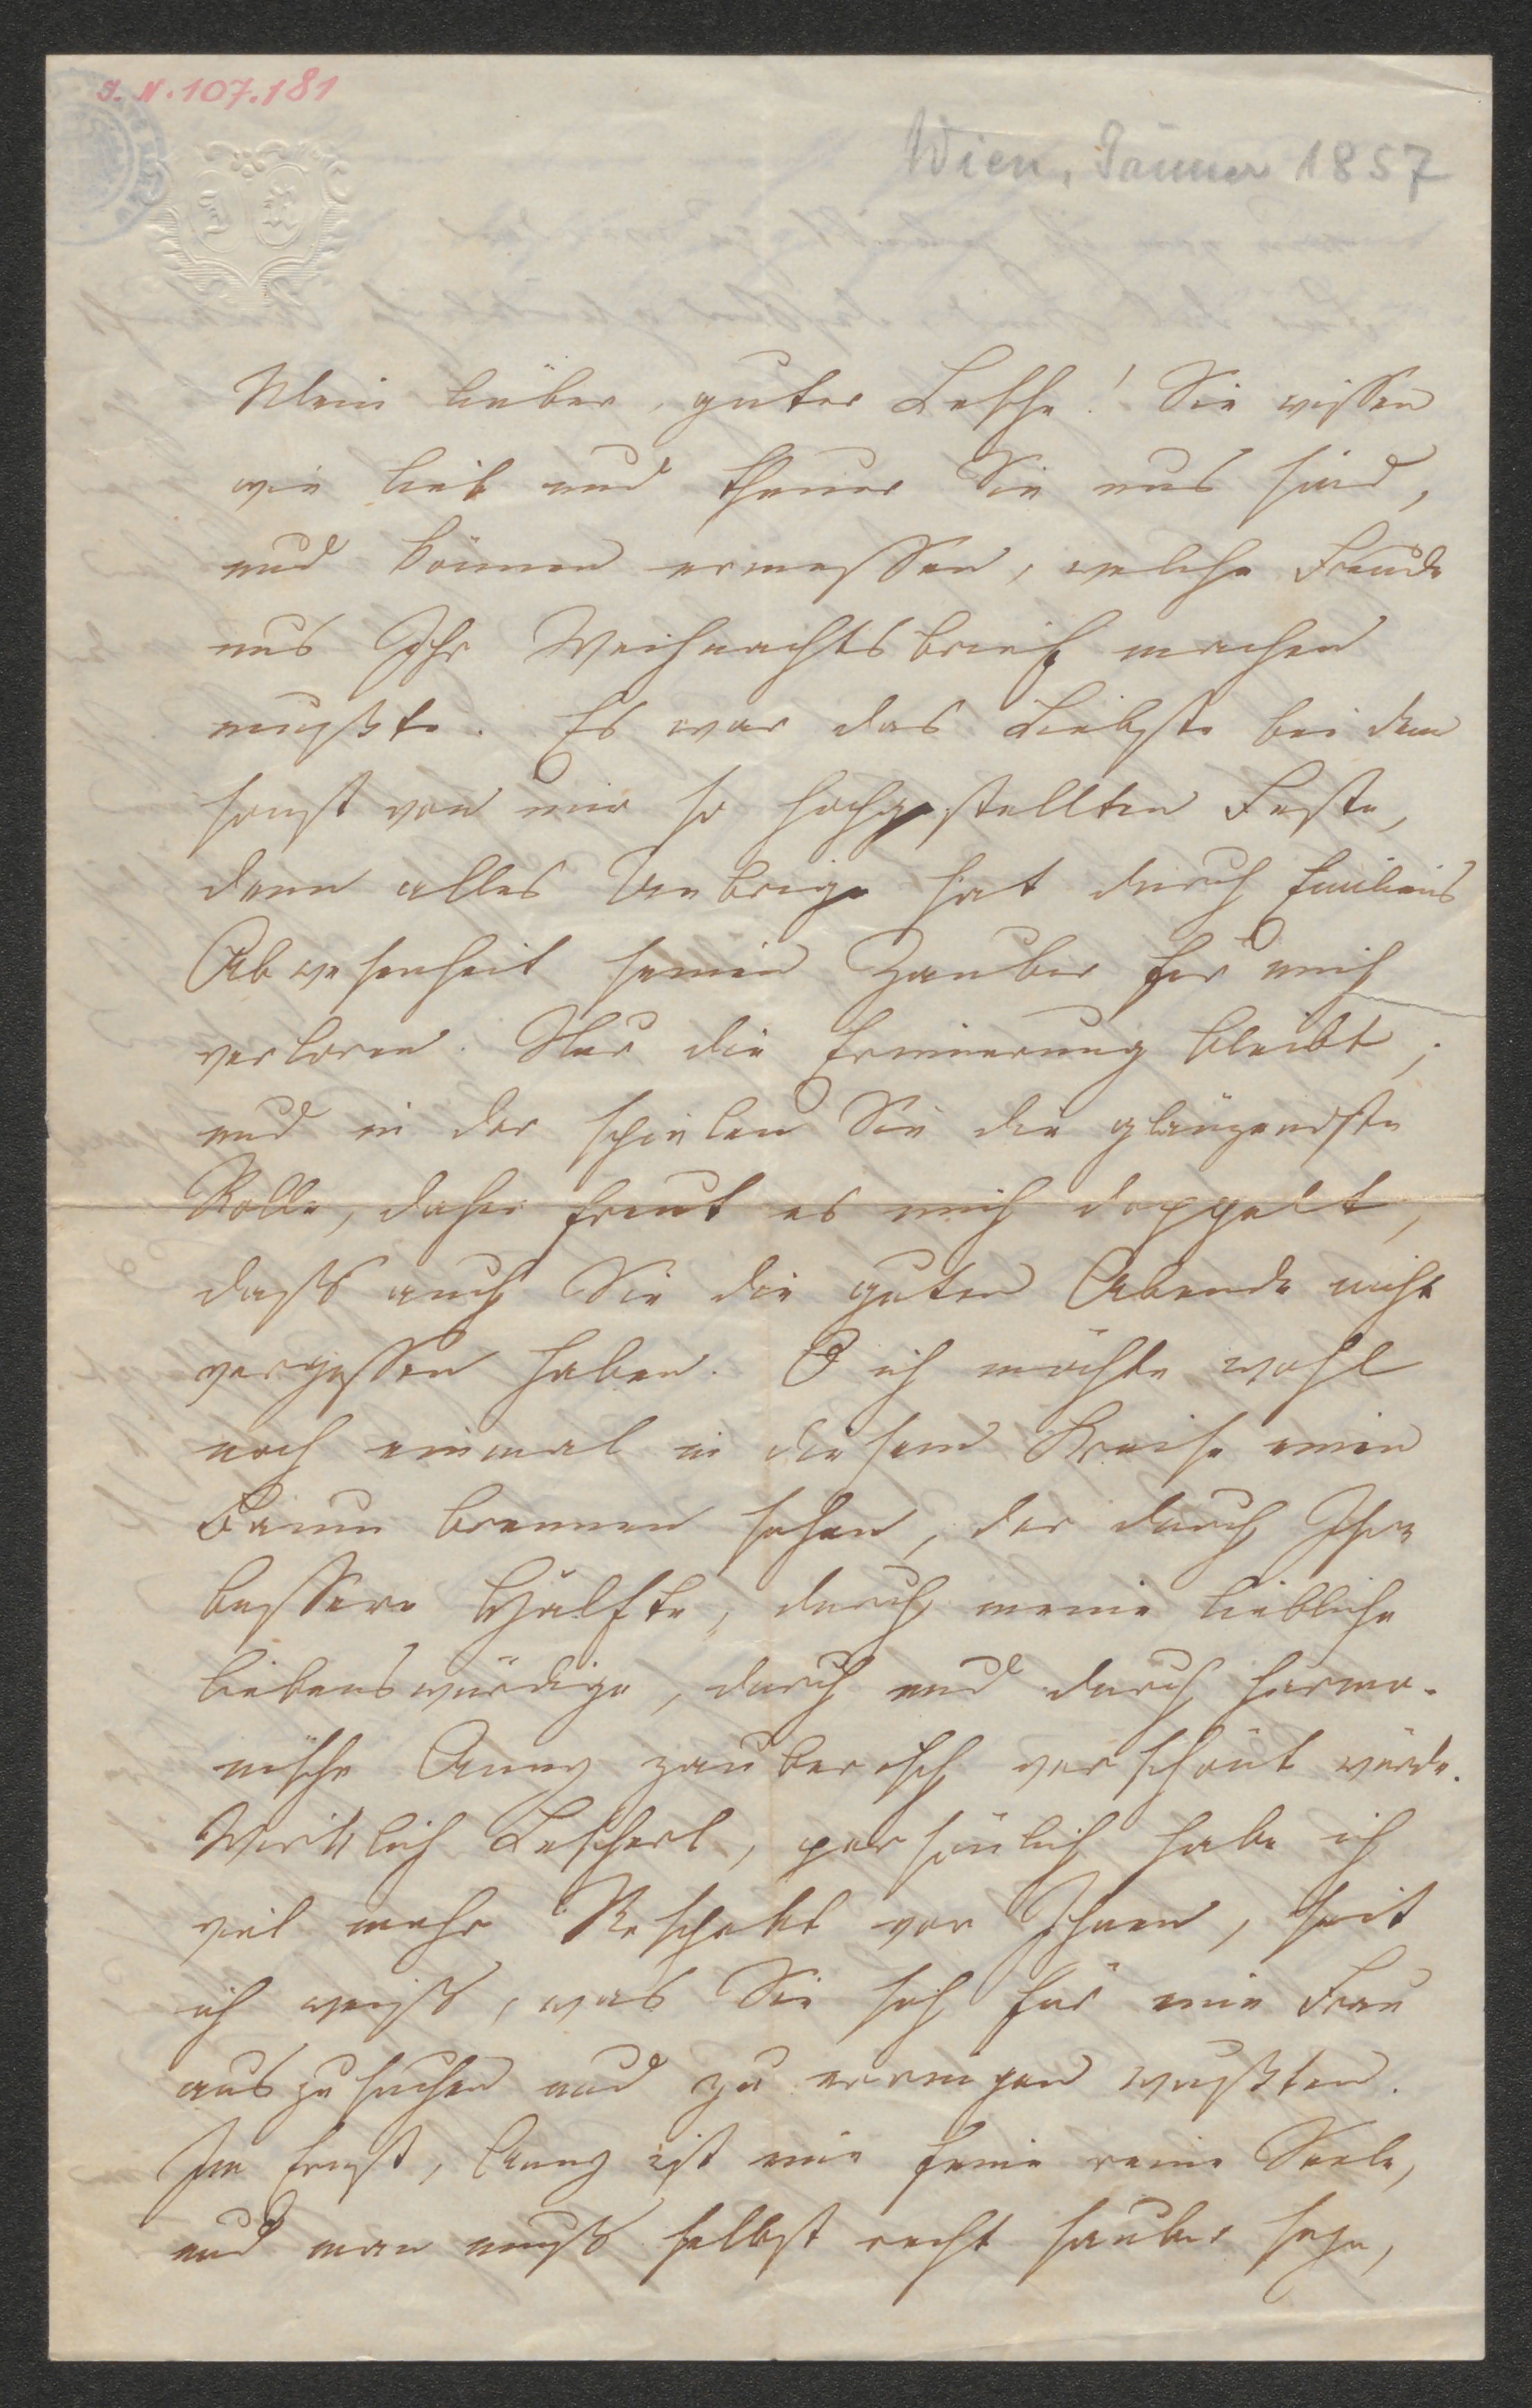 I. N. 107.181
Wien, Jänner 1857
Mein lieber, guter Lesche! Sie wissen
wie lieb und theuer Sie uns sind,
und können ermessen, welche Freude
uns Ihr Weihnachtsbrief machen
mußte. Es war das Liebste bei dem
sonst von mir so hochgestellten Feste,
denn alles Uebrige hat durch Emiliens
Abwesenheit seinen Zauber für mich
verloren. Nur die Erinnerung bleibt,
und in der spielen Sie die glänzendste
Rolle, daher freut es mich doppelt,
daß auch Sie die guten Abende nicht
vergessen haben. O ich möchte wohl
noch einmal in diesem Kreise einen
Baum brennen sehen, der durch Ihre
bessere Hälfte, durch meine liebliche
liebenswürdige, durch und durch harmo-
nische Anny zauberisch verschönt würde.
Wirklich Lescherl, persönlich habe ich
viel mehr Respekt vor Ihnen, seit
ich weiß, was Sie sich für eine Frau
auszusuchen und zu erringen wußten.
Im Ernst, Anny ist eine feine reine Seele,
und man muß selbst recht sauber seyn,